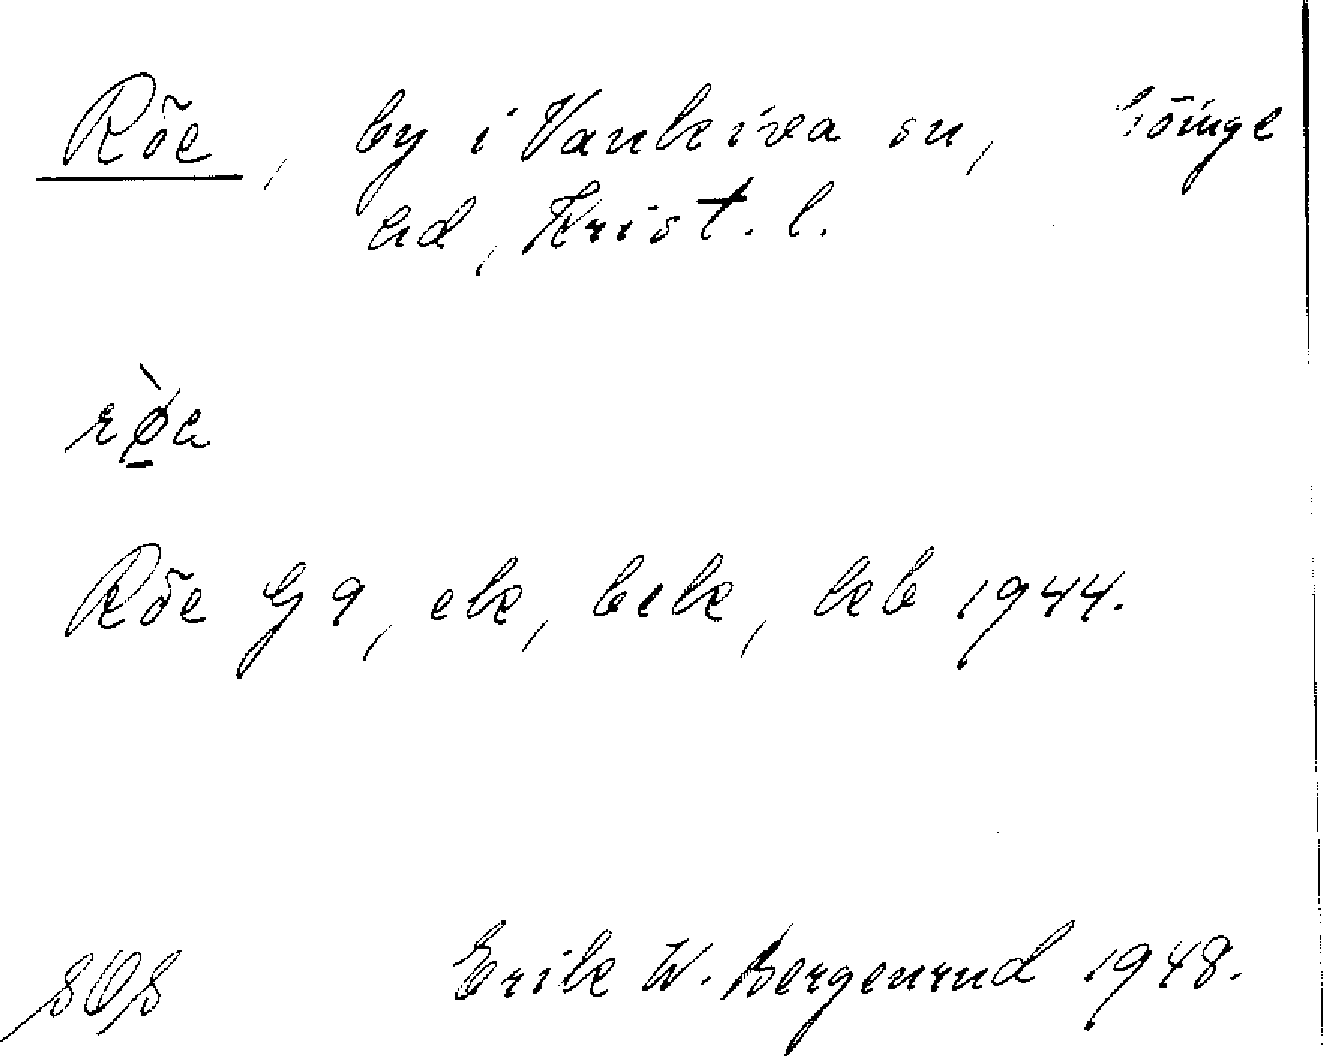 Röe, by i Vankiva sn, Göinge
hd, Krist. l.
rø̀e
Röe G 9, ek, bek, kb 1944.
Erik W. Bergenrud 1948.